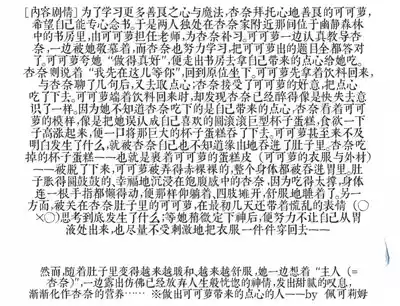 [内容剧情] 为了学习更多善良之心与魔法，杏奈拜托心地善良的可可萝，
希望自己能专心念书，于是两人独处在杏奈家附近那间位于幽静森林
中的书房里，由可可萝担任老师，为杏奈补习。可可萝一边认真教导杏
奈，一边被她敬慕着，而杏奈也努力学习，把可可萝出的题目全都答对
了。可可萝夸她“做得真好”，便走出书房去拿自己带来的点心给她吃。
杏奈则说着“我先在这儿等你”，回到原位坐下。可可萝先拿着饮料回来，
与杏奈聊了几句后，又去取点心；杏奈接受了可可萝的好意，把点心
吃了下去。可可萝端着饮料回来时，却发现杏奈已经醉得像是快失去意
识了一样。因为她不知道杏奈吃下的是自己带来的点心，杏奈看着可可
萝的模样，像是把她误认成自己喜欢的圆滚滚巨型杯子蛋糕，食欲一下
子高涨起来，便一口将那巨大的杯子蛋糕吞了下去。可可萝甚至来不及
明白发生了什么，就被杏奈自己也不知道缘由地吞进了肚子里。杏奈吃
掉的杯子蛋糕——也就是裹着可可萝的蛋糕皮（可可萝的衣服与外材）
——被脱了下来，可可萝被弄得赤裸裸的，整个身体都被吞进胃里。肚
子胀得圆鼓鼓的、幸福地沉浸在饱腹感中的杏奈，因为吃得太撑，身体
连一根手指都懒得动，便那样仰躺着，四肢摊开，舒服地睡着了。另一
方面，被关在杏奈肚子里的可可萝，在最初几天还带着慌乱的表情（〇
×〇）思考到底发生了什么；等她稍微定下神后，便努力不让自己从胃
液处出来，也尽量不受刺激地把衣服一件件穿回去——
然而，随着肚子里变得越来越暖和、越来越舒服，她一边想着“主人（＝
杏奈）”，一边露出仿佛已经放弃人生般恍惚的神情，发出甜腻的叹息，
渐渐化作杏奈的营养…… ※做出可可萝带来的点心的人——by 佩可莉姆